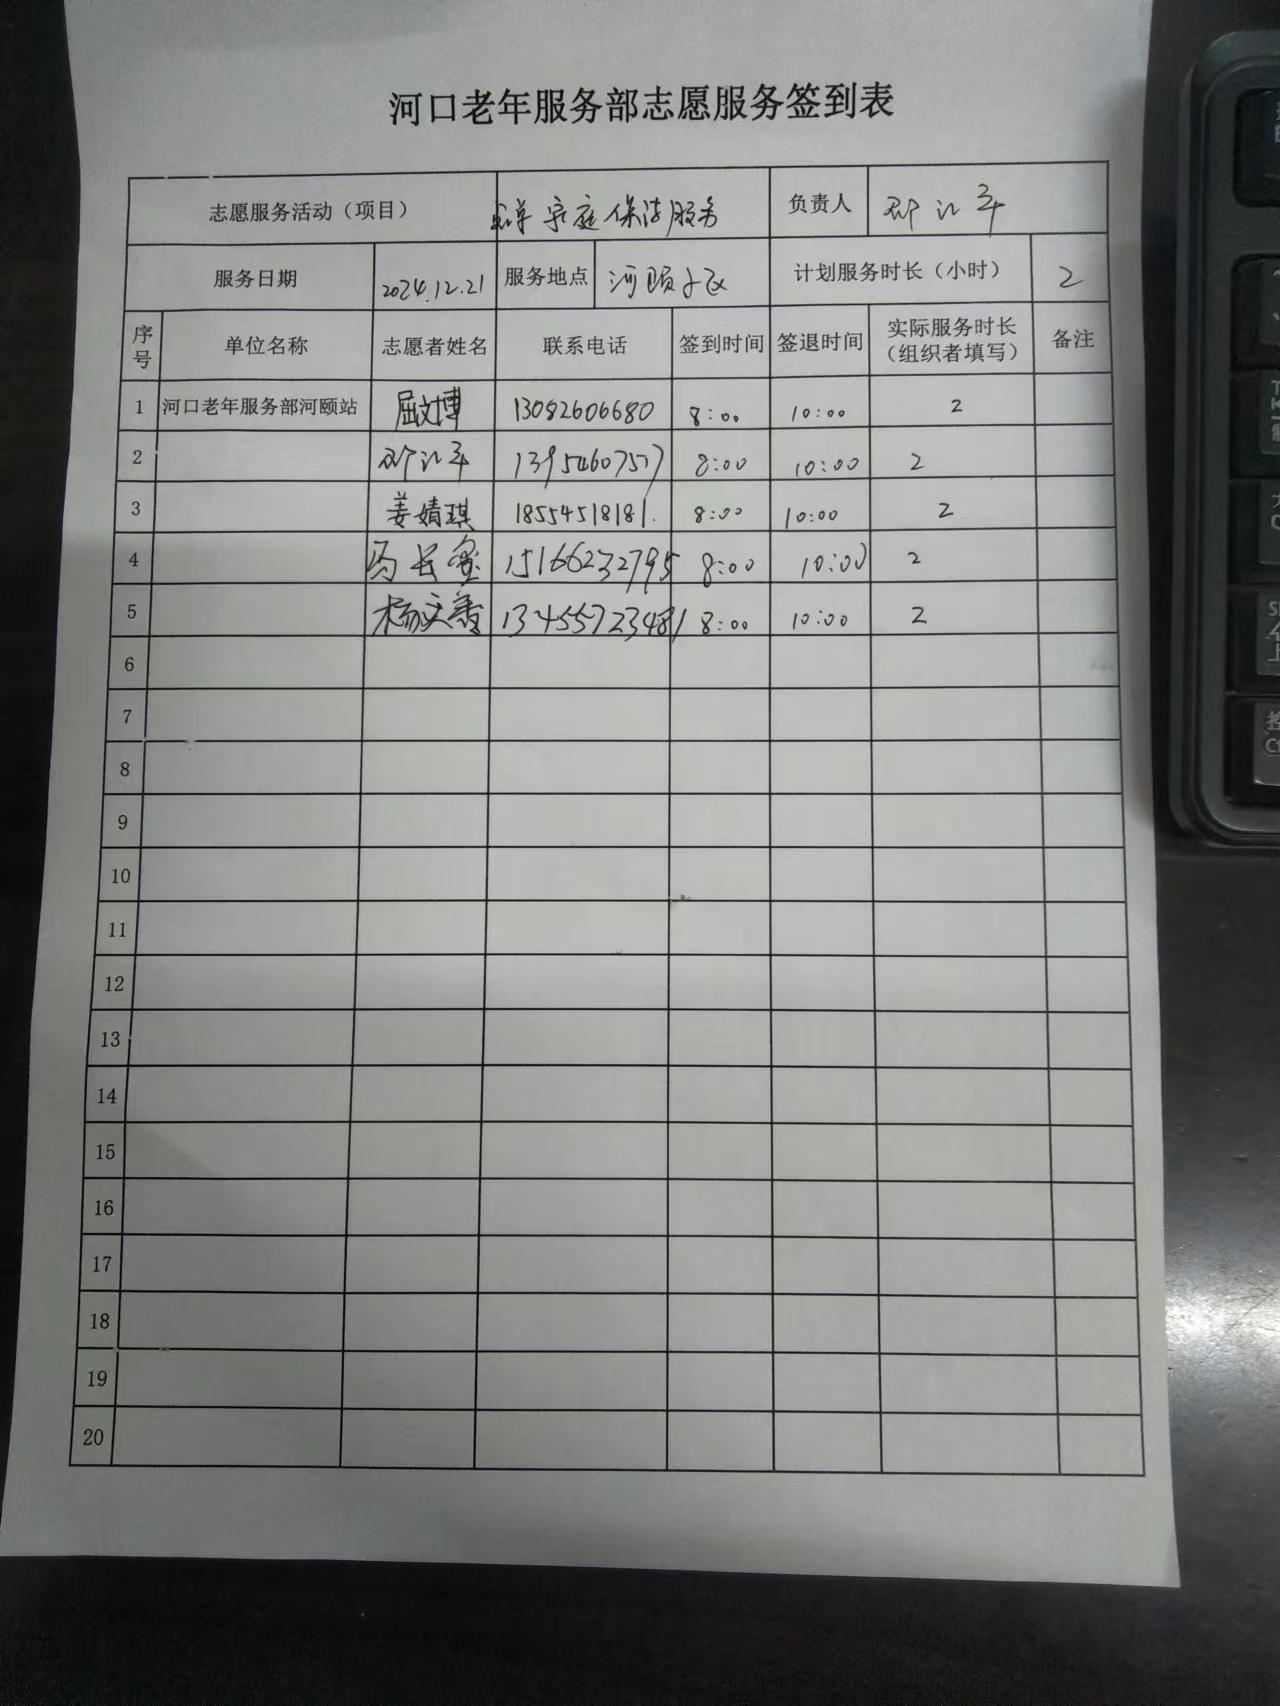 河口老年服务部志愿服务签到表
志愿服务活动（项目） 家庭保洁服务 负责人
服务日期 2024.12.21 服务地点 河颐 计划服务时长（小时） 2
序号 单位名称 志愿者姓名 联系电话 签到时间 签退时间 实际服务时长（组织者填写） 备注
1 河口老年服务部河颐站 屈文博 13082606680 8:00 10:00 2
2 8:00 10:00 2
3 姜婧琪 18554518181. 8:00 10:00 2
4 马长 15166232795 8:00 10:00 2
5 杨 13455723481 8:00 10:00 2
6
7
8
9
10
11
12
13
14
15
16
17
18
19
20